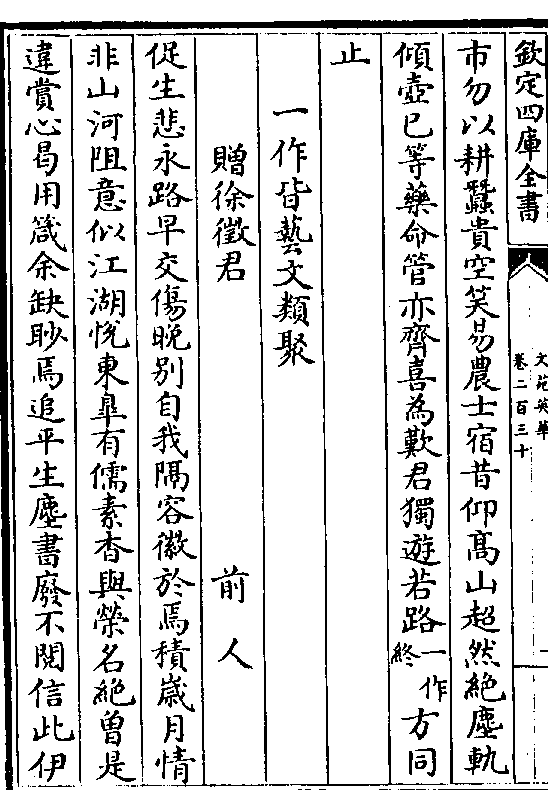 欽定四庫全書
文苑英華
卷二百三十
市勿以耕蠶貴空笑易農士宿昔仰髙山超然絶塵軌
傾壺已等藥命管亦齊喜為歎君獨遊若路一作終方同
止
一作皆藝文類聚
贈徐徵君 前人
促生悲永路早交傷晚别自我隔容徽於焉積歲月情
非山河阻意似江湖悅東臯有儒素杳與榮名絶曽是
違賞心曷用箴余缺眇焉追平生塵書廢不閱信此伊